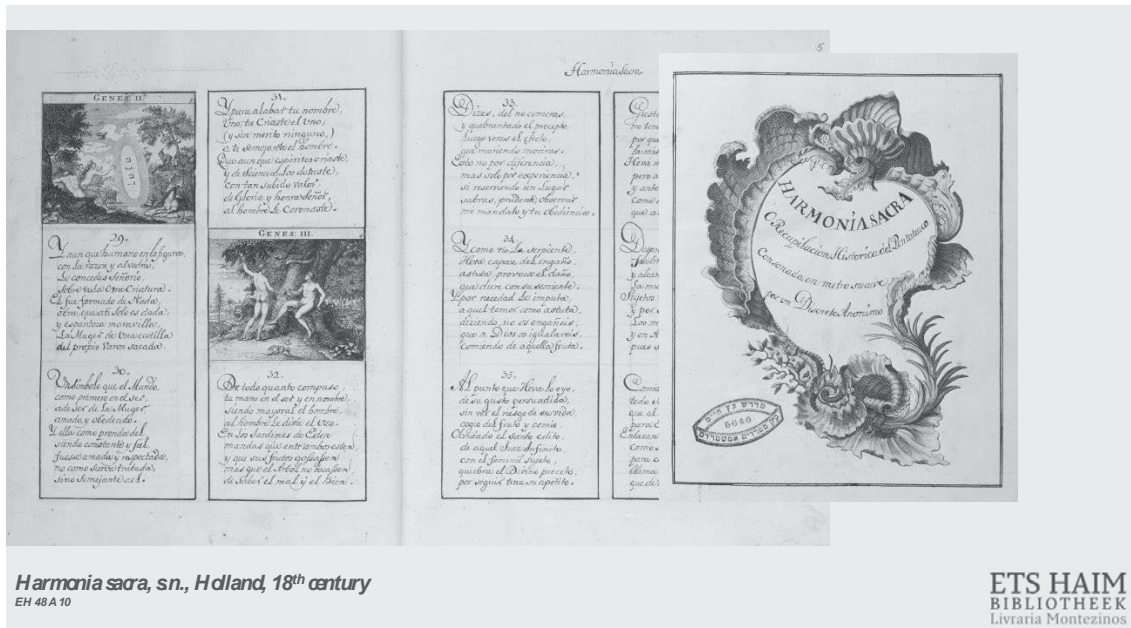 GENES II.
29.
Y aunque humano en la figura,
con la razon y alvedrio,
Le concedes Señorio,
sobre toda Otra Criatura.
El fue formado de Nada,
obra, que a ti solo es dada;
y espantosa maravilla,
La Muger de Una costilla
del propio Varon sacada.
30.
Un simbolo que el Mando,
como primero en el ser,
a de ser de La Muger,
amado y obedecido.
Y ella como prenda del
siendo constante y fiel
fuese amada y respectada,
no como sierva tratada,
sino semejante a el.
31.
Y para alabar tu nombre,
Uno, tu Criaste el Uno,
(y sin merito ninguno,)
a ti semejante el hombre.
Que aunque espiritos criaste,
y de esencial Los dotaste,
con tan subido valor
de Gloria y honra Señor,
al hombre Le Coronaste.
GENES III.
32.
De todo quanto compuso,
tu mano en el ser y en nombre,
siendo mayoral el hombre,
al hombre Le diste el Uso.
En los Jardines de Eden
mandas que entrambos esten
y que sus frutos gosassen
mas que el Arbol no tocassen
de saber el mal y el bien.
5
Harmonia Sacra.
33.
Dizes, del no comeras,
y quebrantado el precepto,
Luego veras el efecto,
que muriendo moriras.
Esto no por diferencia,
mas solo por experiencia,
si reservando un Lugar
sabras, prudente observar
mi mandato y tu obediencia.
34.
Y como vio La serpiente,
Heva capaz del engaño,
astuta, provoca el daño,
que dixe con su simiente.
Y por necedad Le imputa,
a aquel temor como astuta,
diziendo, no os engañeis,
que a Dios os igualareis,
comiendo de aquella fruta.
35.
Al punto que Heva lo oyo,
de su gusto persuadida,
sin ver el riesgo de su vida,
cogio del fruto y comio.
Olvidado el santo edito,
de aquel Juez Infinito,
con el femenil sujeto,
quiebra el Divino preceto,
por seguir tras su apetito.
HARMONÍA SACRA
O Recupilacion Historica del Pentateuco
Consonada en metro suave
por un Discreto Anónimo
מדרש עץ חיים
5646
לק״ק ספרדים אמשטרדם
Harmonia sacra, s.n., Holland, 18th century
EH 48 A 10
ETS HAIM
BIBLIOTHEEK
Livraria Montezinos